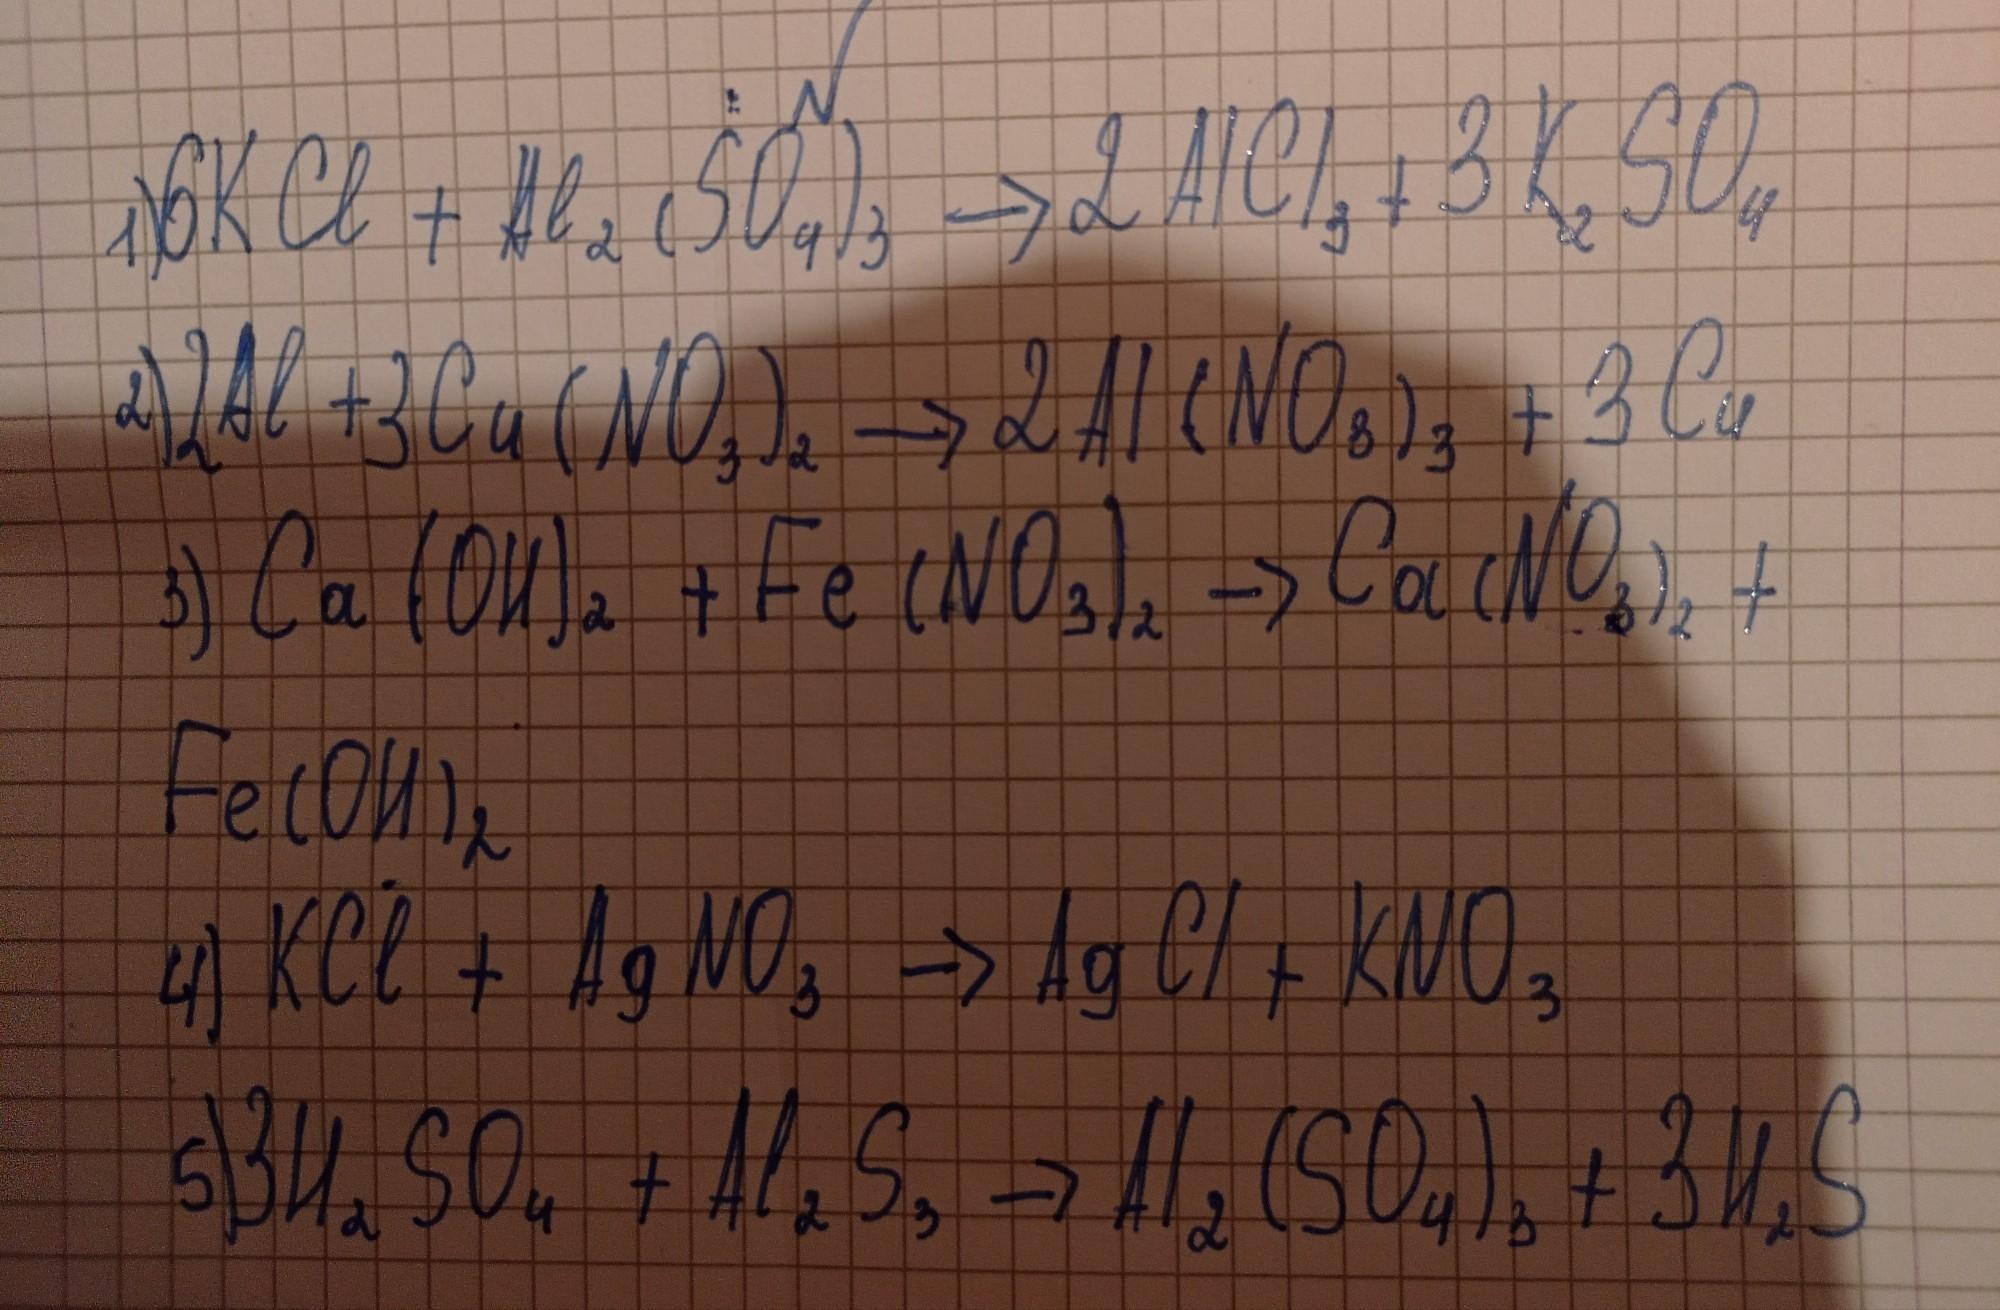 1) 6KCl + Al₂(SO₄)₃ → 2AlCl₃ + 3K₂SO₄
2) 2Al + 3Cu(NO₃)₂ → 2Al(NO₃)₃ + 3Cu
3) Ca(OH)₂ + Fe(NO₃)₂ → Ca(NO₃)₂ +
Fe(OH)₂
4) KCl + AgNO₃ → AgCl + KNO₃
5) 3H₂SO₄ + Al₂S₃ → Al₂(SO₄)₃ + 3H₂S